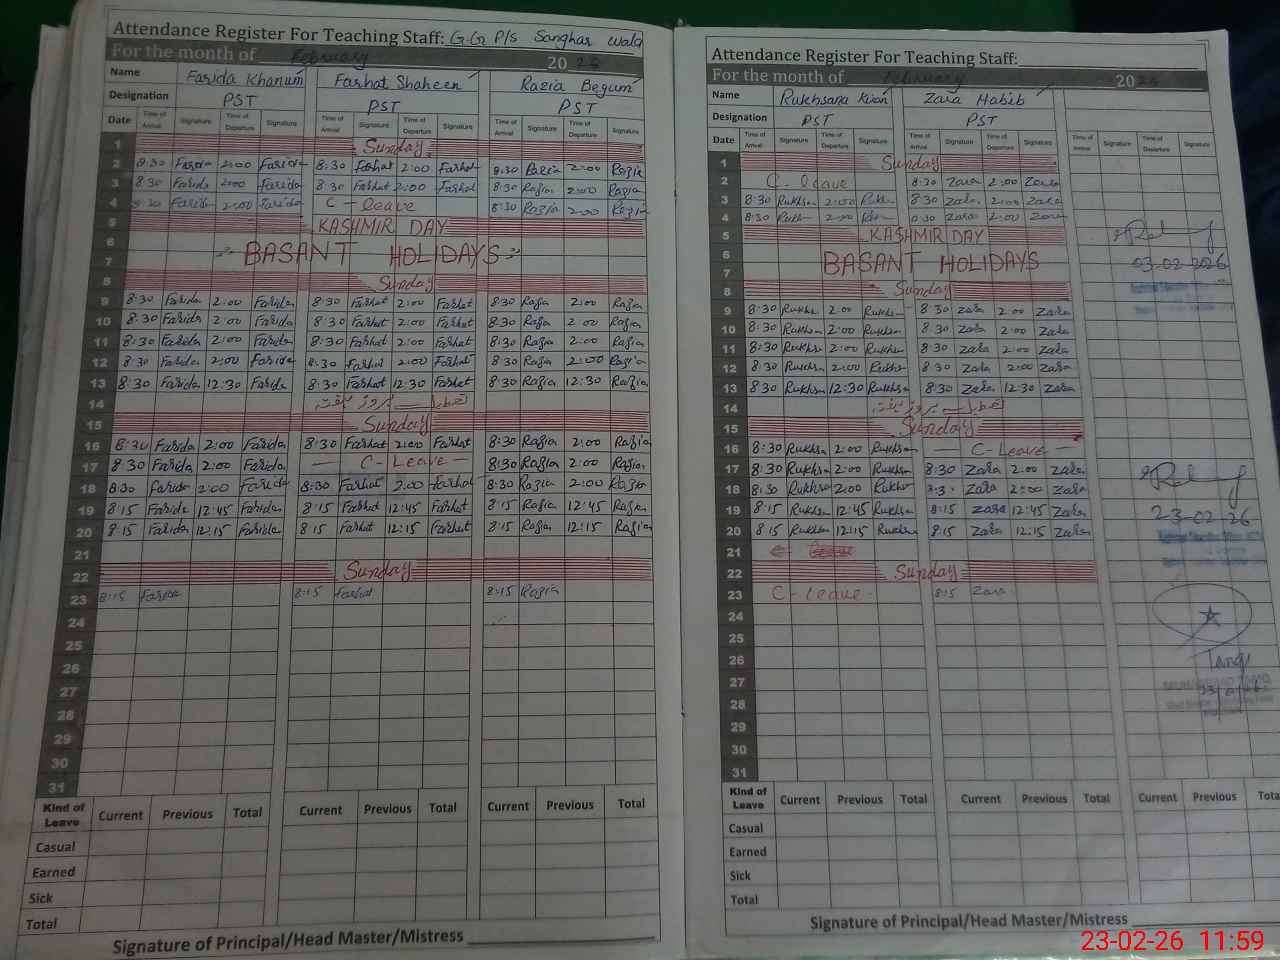 Attendance Register For Teaching Staff: G.G P/s Sanghar wala
For the month of February 2026
Name Farida Khanum Farhat Shaheen Razia Begum
Designation PST PST PST
Date Time of Arrival Signature Time of Departure Signature Time of Arrival Signature Time of Departure Signature Time of Arrival Signature Time of Departure Signature
1 Sunday
2 8:30 Farida 2:00 Farida 8:30 Farhat 2:00 Farhat 8:30 Razia 2:00 Razia
3 8 30 Farida 2:00 Farida 8 30 Farhat 2:00 Farhat 8:30 Razia 2:00 Razia
4 8:30 Farida 2:00 Farida C - leave 8:30 Razia 2:00 Razia
5 KASHMIR DAY
6
7 BASANT HOLIDAYS
8 Sunday
9 8:30 Farida 2:00 Farida 8:30 Farhat 2:00 Farhat 8:30 Razia 2:00 Razia
10 8:30 Farida 2:00 Farida 8:30 Farhat 2:00 Farhat 8:30 Razia 2:00 Razia
11 8:30 Farida 2:00 Farida 8:30 Farhat 2:00 Farhat 8:30 Razia 2:00 Razia
12 8:30 Farida 2:00 Farida 8:30 Farhat 2:00 Farhat 8:30 Razia 2:00 Razia
13 8:30 Farida 12:30 Farida 8:30 Farhat 12:30 Farhat 8:30 Razia 12:30 Razia
14 تعطیل بروز ہفتہ
15 Sunday
16 8:30 Farida 2:00 Farida 8:30 Farhat 2:00 Farhat 8:30 Razia 2:00 Razia
17 8:30 Farida 2:00 Farida C-Leave 8:30 Razia 2:00 Razia
18 8:30 Farida 2:00 Farida 8:30 Farhat 2:00 Farhat 8:30 Razia 2:00 Razia
19 8:15 Farida 12:45 Farida 8:15 Farhat 12:45 Farhat 8:15 Razia 12:45 Razia
20 8:15 Farida 12:15 Farida 8:15 Farhat 12:15 Farhat 8:15 Razia 12:15 Razia
21
22 Sunday
23 8:15 Farida 8:15 Farhat 8:15 Razia
24
25
26
27
28
29
30
31
Kind of Leave Current Previous Total Current Previous Total Current Previous Total
Casual
Earned
Sick
Total
Signature of Principal/Head Master/Mistress
Attendance Register For Teaching Staff:
For the month of February 2026
Name Rukhsana Kiran Zara Habib
Designation PST PST
Date Time of Arrival Signature Time of Departure Signature Time of Arrival Signature Time of Departure Signature Time of Arrival Signature Time of Departure Signature
1 Sunday
2 C - leave 8:30 Zara 2:00 Zara
3 8:30 Rukhs 2:00 Rukhs 8:30 Zara 2:00 Zara
4 8:30 Rukh 2:00 8:30 Zara 2:00 Zara
5 KASHMIR DAY
6 03-02-2026
7 BASANT HOLIDAYS
8 Sunday
9 8:30 Rukhsa 2:00 Rukhsa 8 30 Zara 2:00 Zara
10 8:30 Rukhsa 2:00 Rukhsa 8:30 Zara 2:00 Zara
11 8:30 Rukhsa 2:00 Rukhsa 8:30 Zara 2:00 Zara
12 8:30 Rukhsa 2:00 Rukhsa 8:30 Zara 2:00 Zara
13 8:30 Rukhsa 12:30 Rukhsa 8:30 Zara 12:30 Zara
14 تعطیل بروز ہفتہ
15 Sunday
16 8:30 Rukhsa 2:00 Rukhsa C-Leave
17 8:30 Rukhsa 2:00 Rukhsa 8:30 Zara 2:00 Zara
18 8:30 Rukhsa 2:00 Rukhsa Zara 2:00 Zara
19 8:15 Rukhsa 12:45 Rukhsa 8:15 Zara 12:45 Zara 23-02-26
20 8:15 Rukhsa 12:15 Rukhsa 8:15 Zara 12:15 Zara
21
22 Sunday
23 C-leave 8:15 Zara
24
25
26
27
28
29
30
31
Kind of Leave Current Previous Total Current Previous Total Current Previous Total
Casual
Earned
Sick
Total
Signature of Principal/Head Master/Mistress
23-02-26 11:59